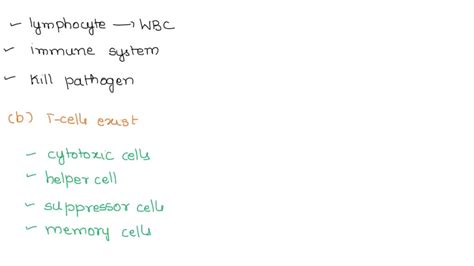 ✓ lymphocyte → WBC
✓ immune system
✓ kill pathogen
(b) T-cells exist
✓ cytotoxic cells
✓ helper cell
✓ suppressor cells
✓ memory cells